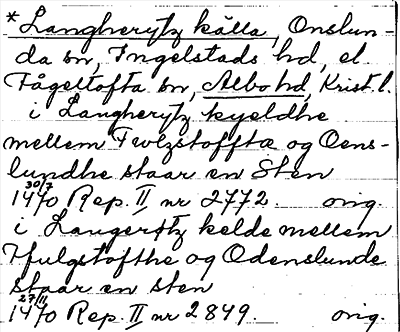 *Langherytz källa, Onslun-
da sn, Ingelstads hd, el.
Fågeltofta sn, Albo hd, Krist. l.
i Langherytz kyeldhe
mellem Fwlzstofftæ og Oens-
lundhe staar en Sten
30/7
1470 Rep. II nr 2772. orig.
i Langerøtz kelde mellem
Ffulgstofthe og Odenslunde
staar en sten
27/11
1470 Rep. II nr 2849. orig.